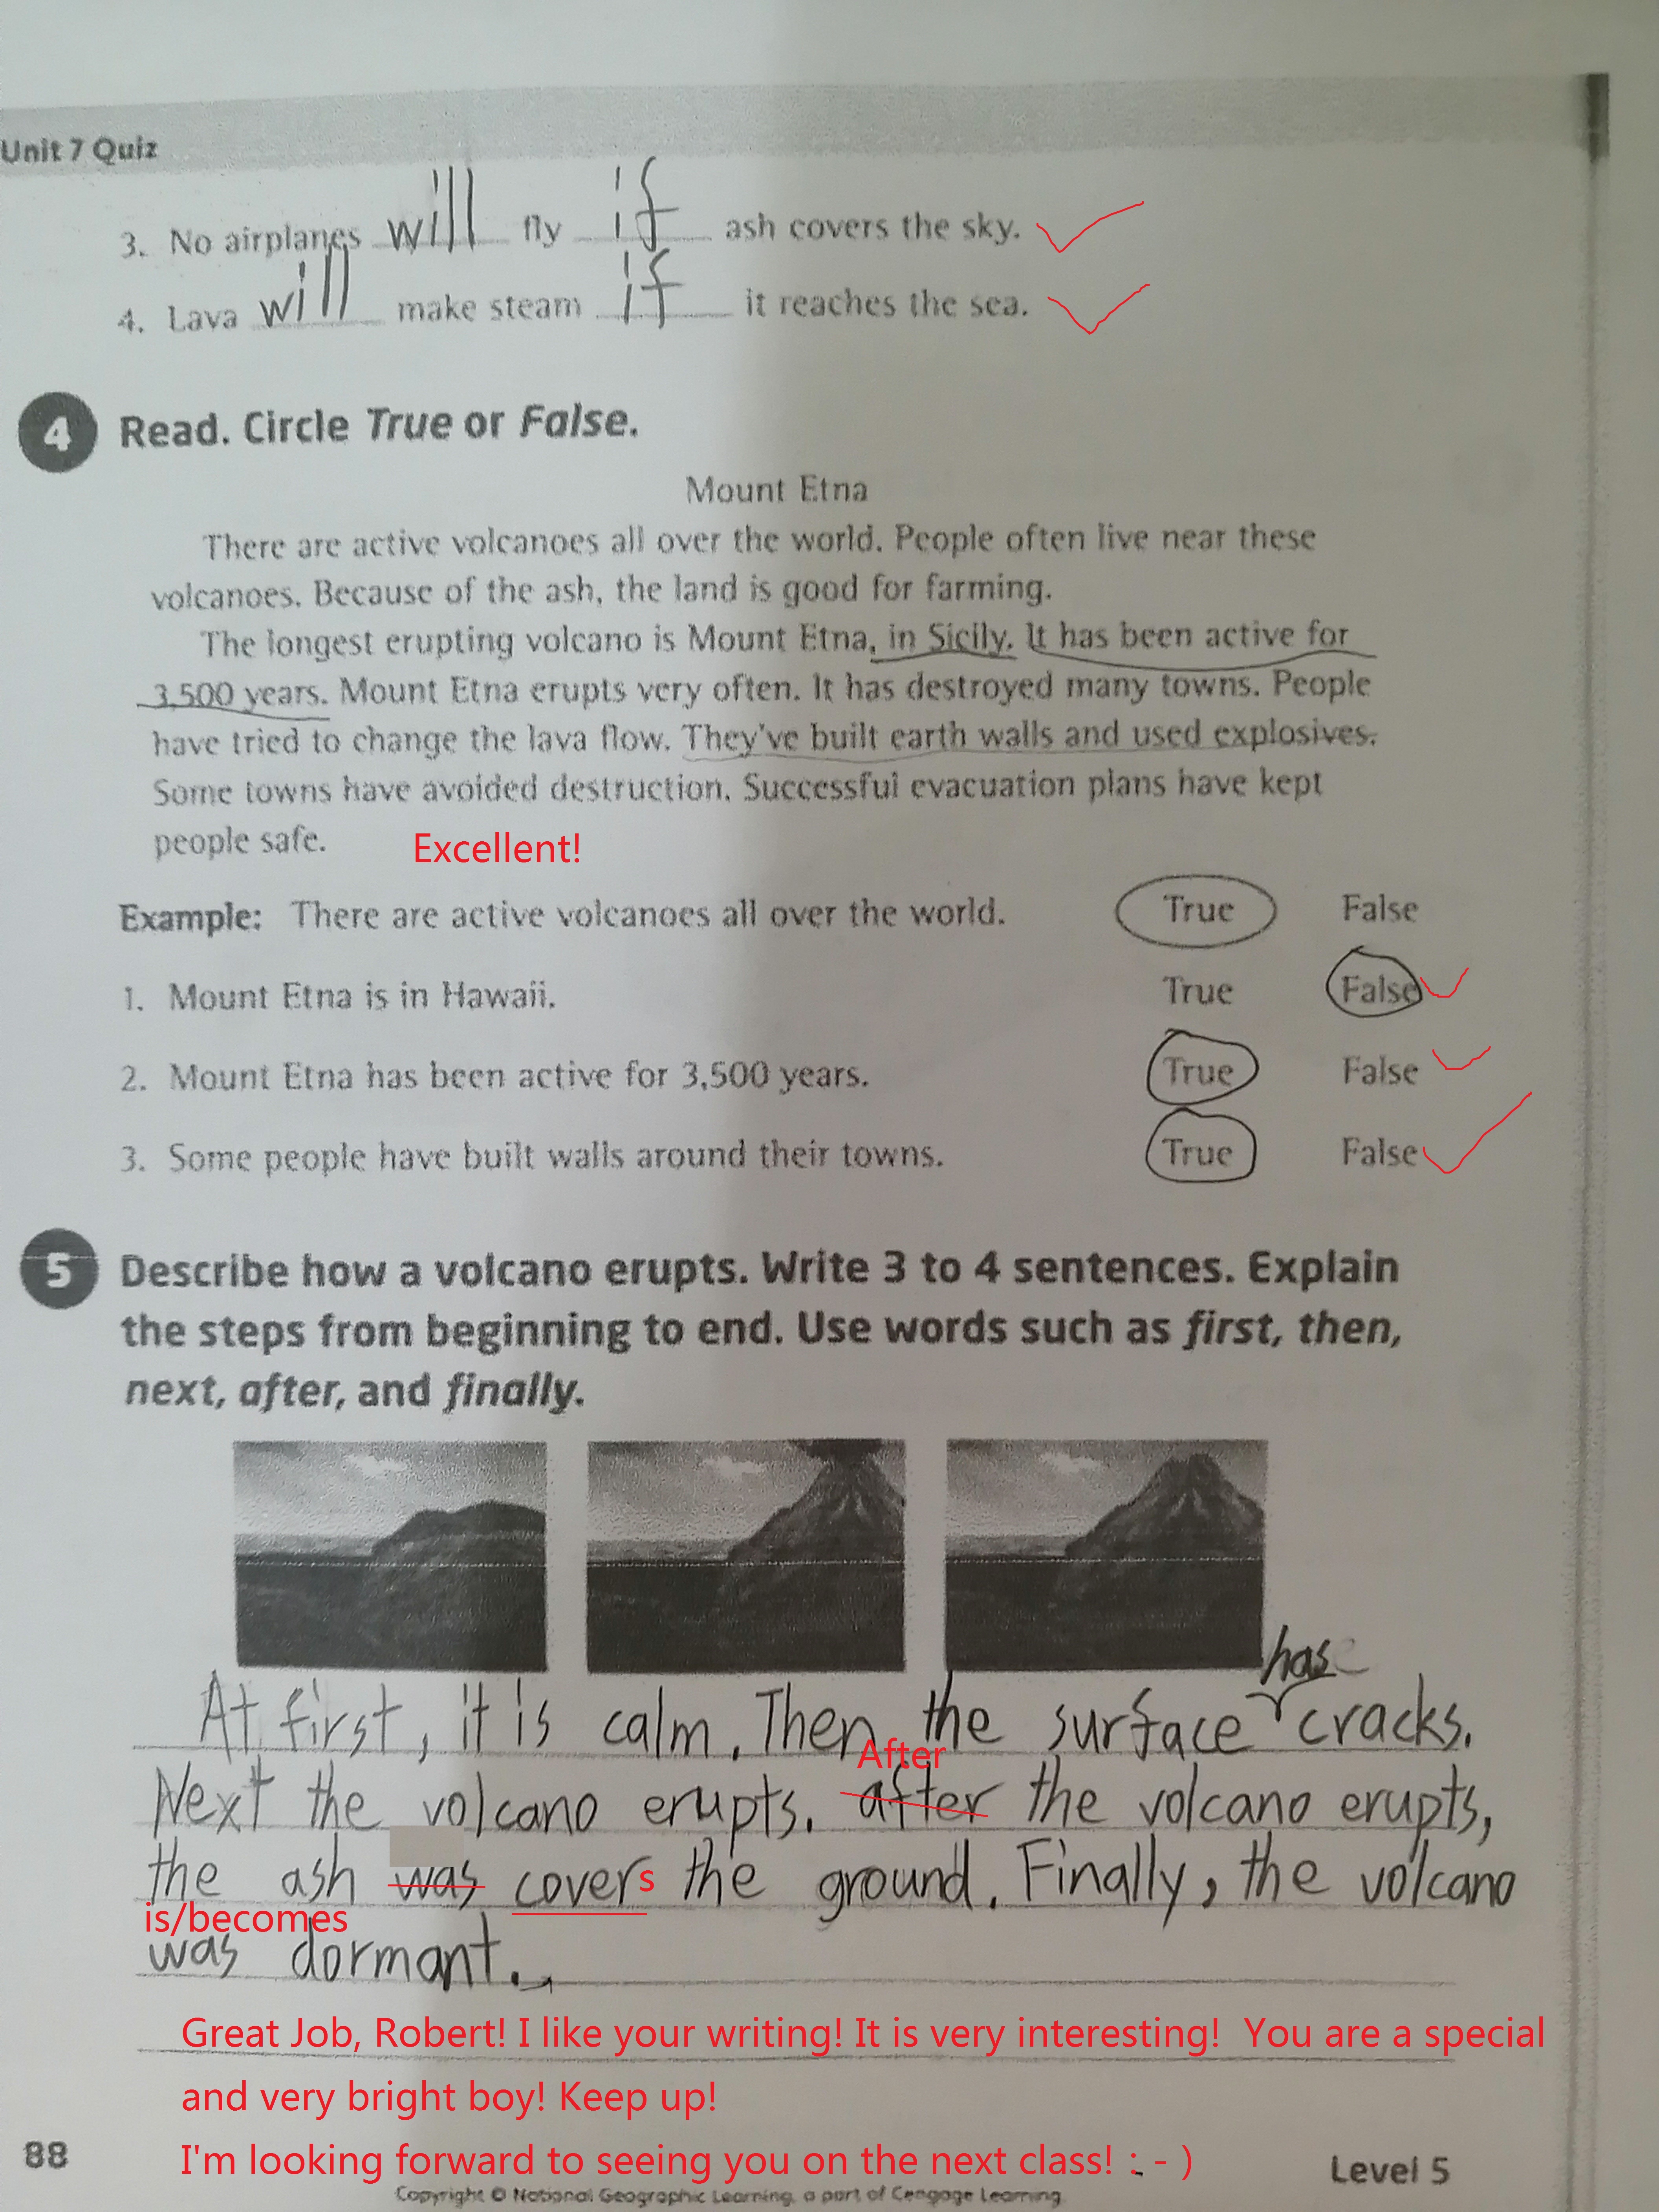 Unit 7 Quiz
3. No airplanes will fly if ash covers the sky.
4. Lava will make steam if it reaches the sea.
4 Read. Circle True or False.
Mount Etna
There are active volcanoes all over the world. People often live near these
volcanoes. Because of the ash, the land is good for farming.
The longest erupting volcano is Mount Etna, in Sicily. It has been active for
3,500 years. Mount Etna erupts very often. It has destroyed many towns. People
have tried to change the lava flow. They've built earth walls and used explosives.
Some towns have avoided destruction. Successful evacuation plans have kept
people safe. Excellent!
Example: There are active volcanoes all over the world. True False
1. Mount Etna is in Hawaii. True False
2. Mount Etna has been active for 3,500 years. True False
3. Some people have built walls around their towns. True False
5 Describe how a volcano erupts. Write 3 to 4 sentences. Explain
the steps from beginning to end. Use words such as first, then,
next, after, and finally.
has
At first, it is calm. Then the surface cracks.
After
Next the volcano erupts. after the volcano erupts,
the ash was covers the ground. Finally, the volcano
is/becomes
was dormant.
Great Job, Robert! I like your writing! It is very interesting! You are a special
and very bright boy! Keep up!
I'm looking forward to seeing you on the next class! : - )
88 Level 5
Copyright © National Geographic Learning, a part of Cengage Learning